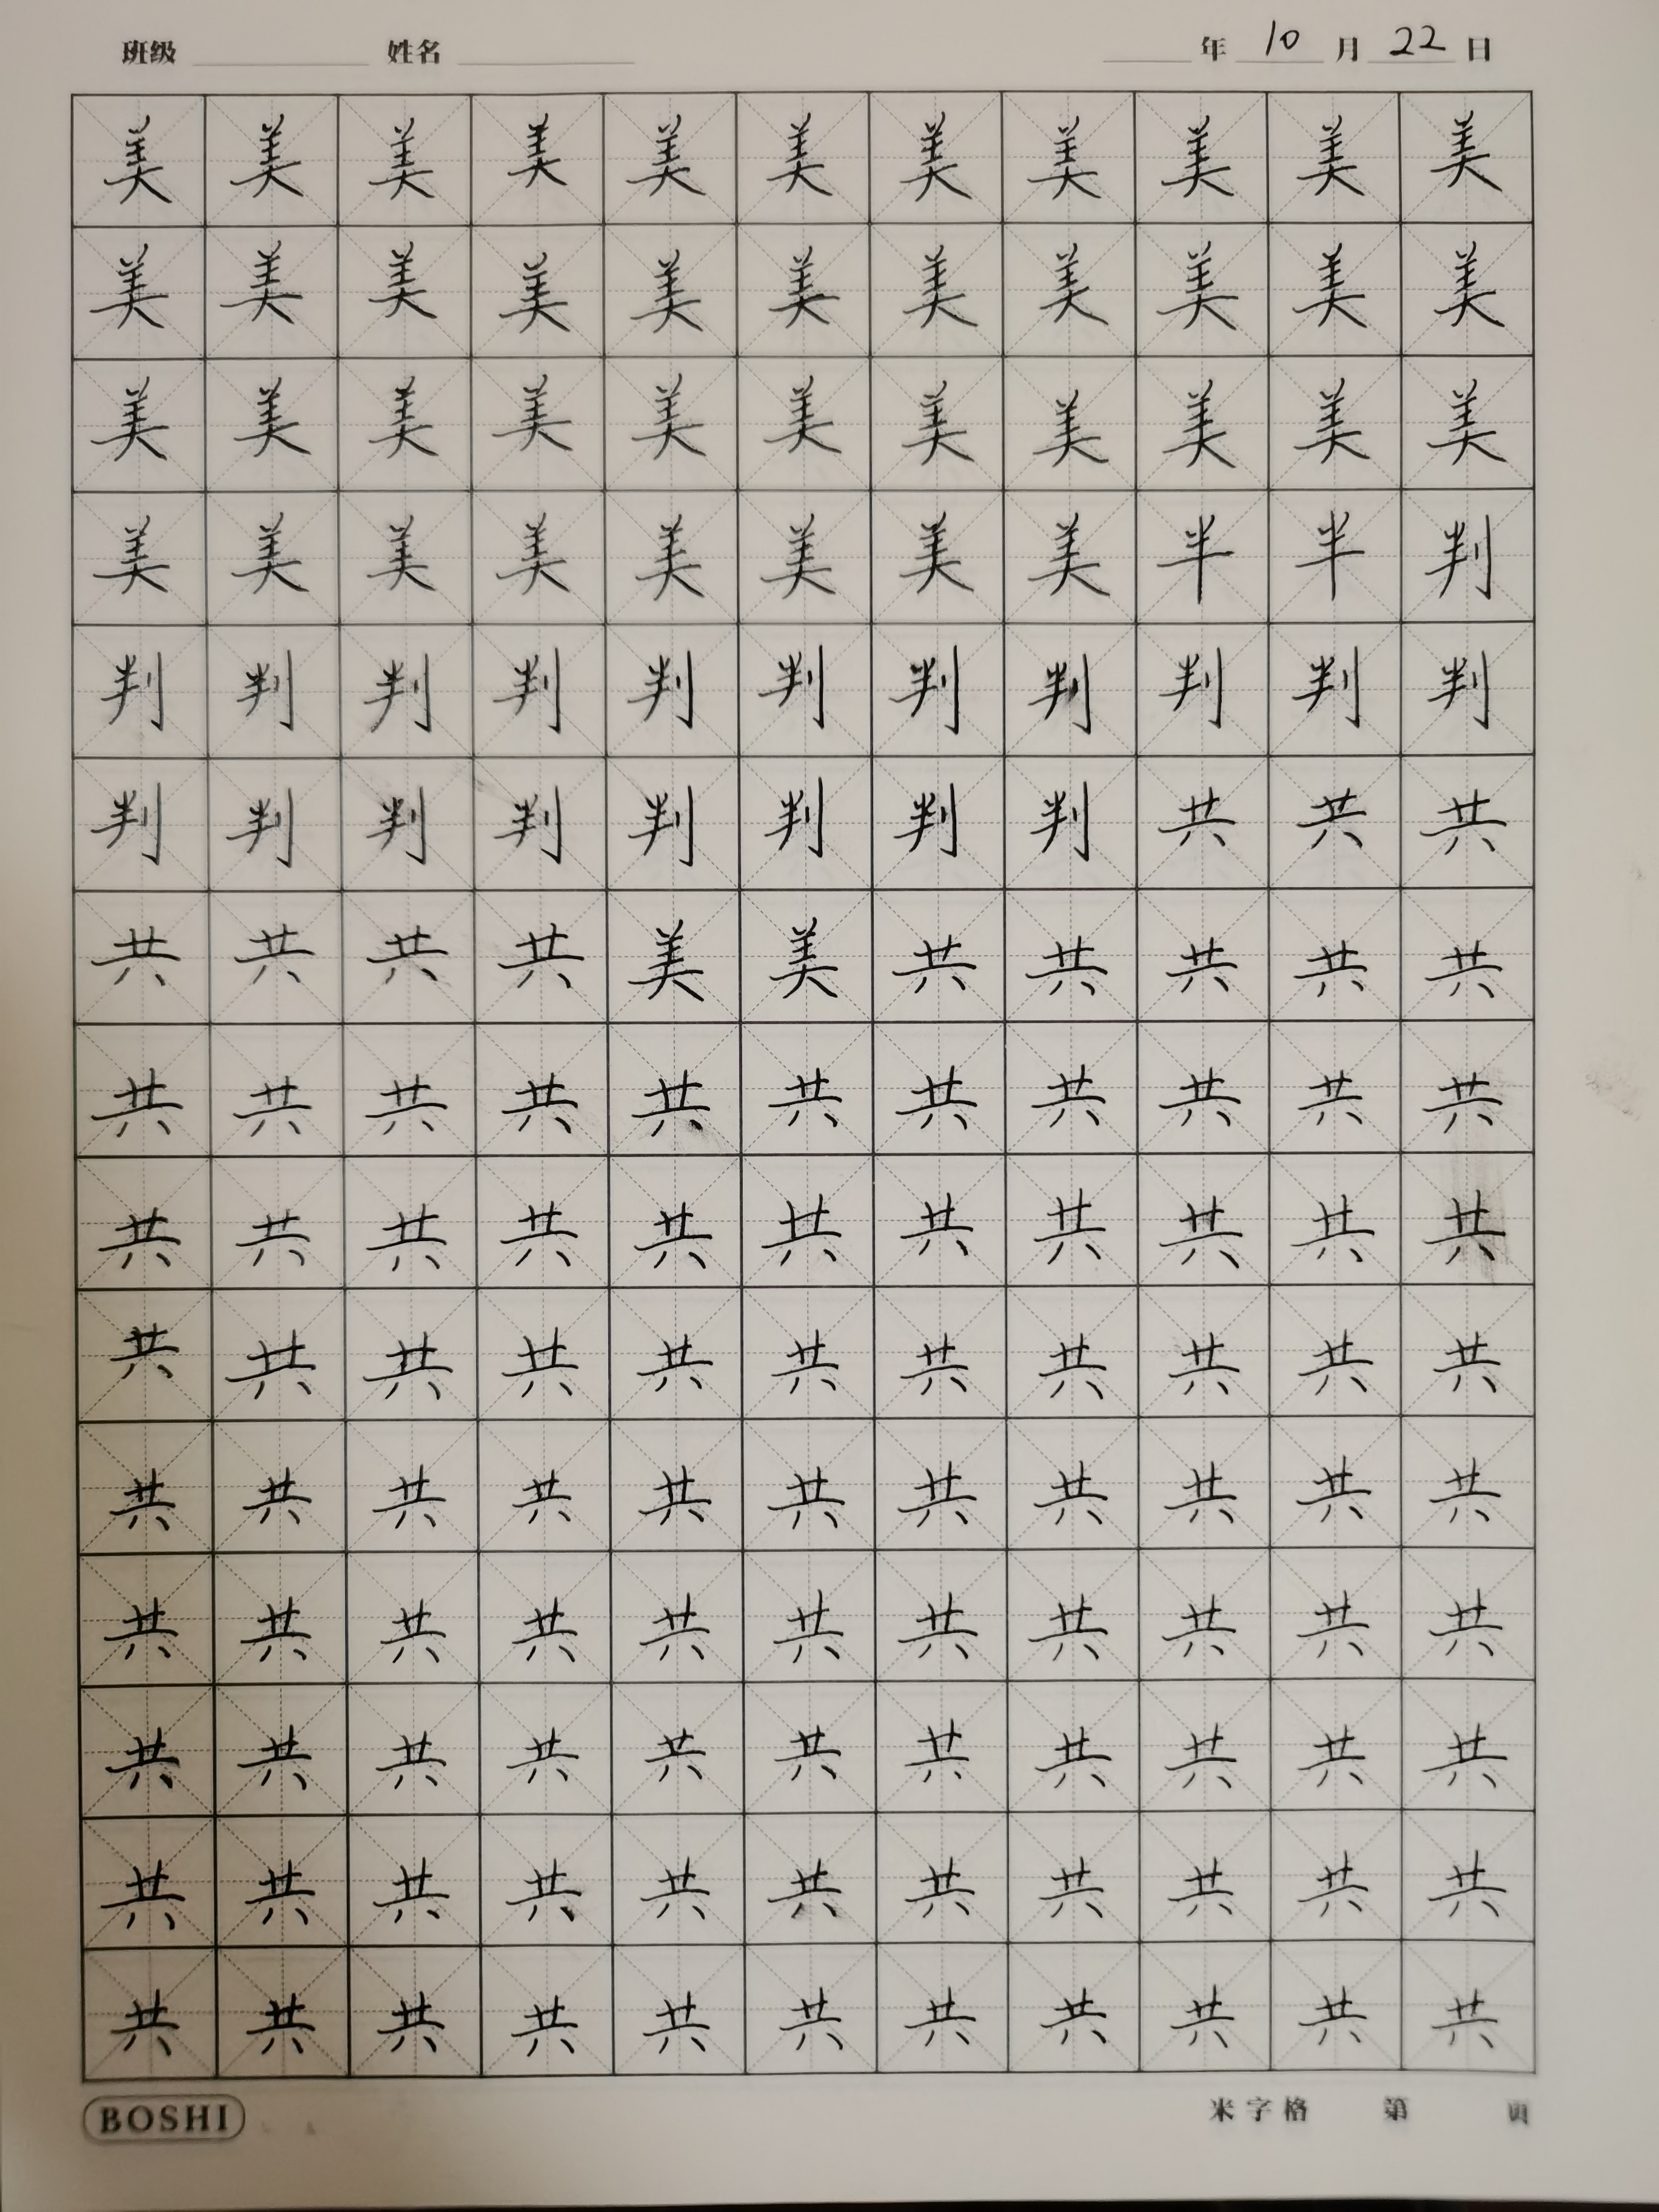 班级 姓名 年 10 月 22 日
美 美 美 美 美 美 美 美 美 美 美
美 美 美 美 美 美 美 美 美 美 美
美 美 美 美 美 美 美 美 美 美 美
美 美 美 美 美 美 美 美 半 半 判
判 判 判 判 判 判 判 判 判 判 判
判 判 判 判 判 判 判 判 共 共 共
共 共 共 共 美 美 共 共 共 共 共
共 共 共 共 共 共 共 共 共 共 共
共 共 共 共 共 共 共 共 共 共 共
共 共 共 共 共 共 共 共 共 共 共
共 共 共 共 共 共 共 共 共 共 共
共 共 共 共 共 共 共 共 共 共 共
共 共 共 共 共 共 共 共 共 共 共
共 共 共 共 共 共 共 共 共 共 共
共 共 共 共 共 共 共 共 共 共 共
BOSHI 米字格 第 页